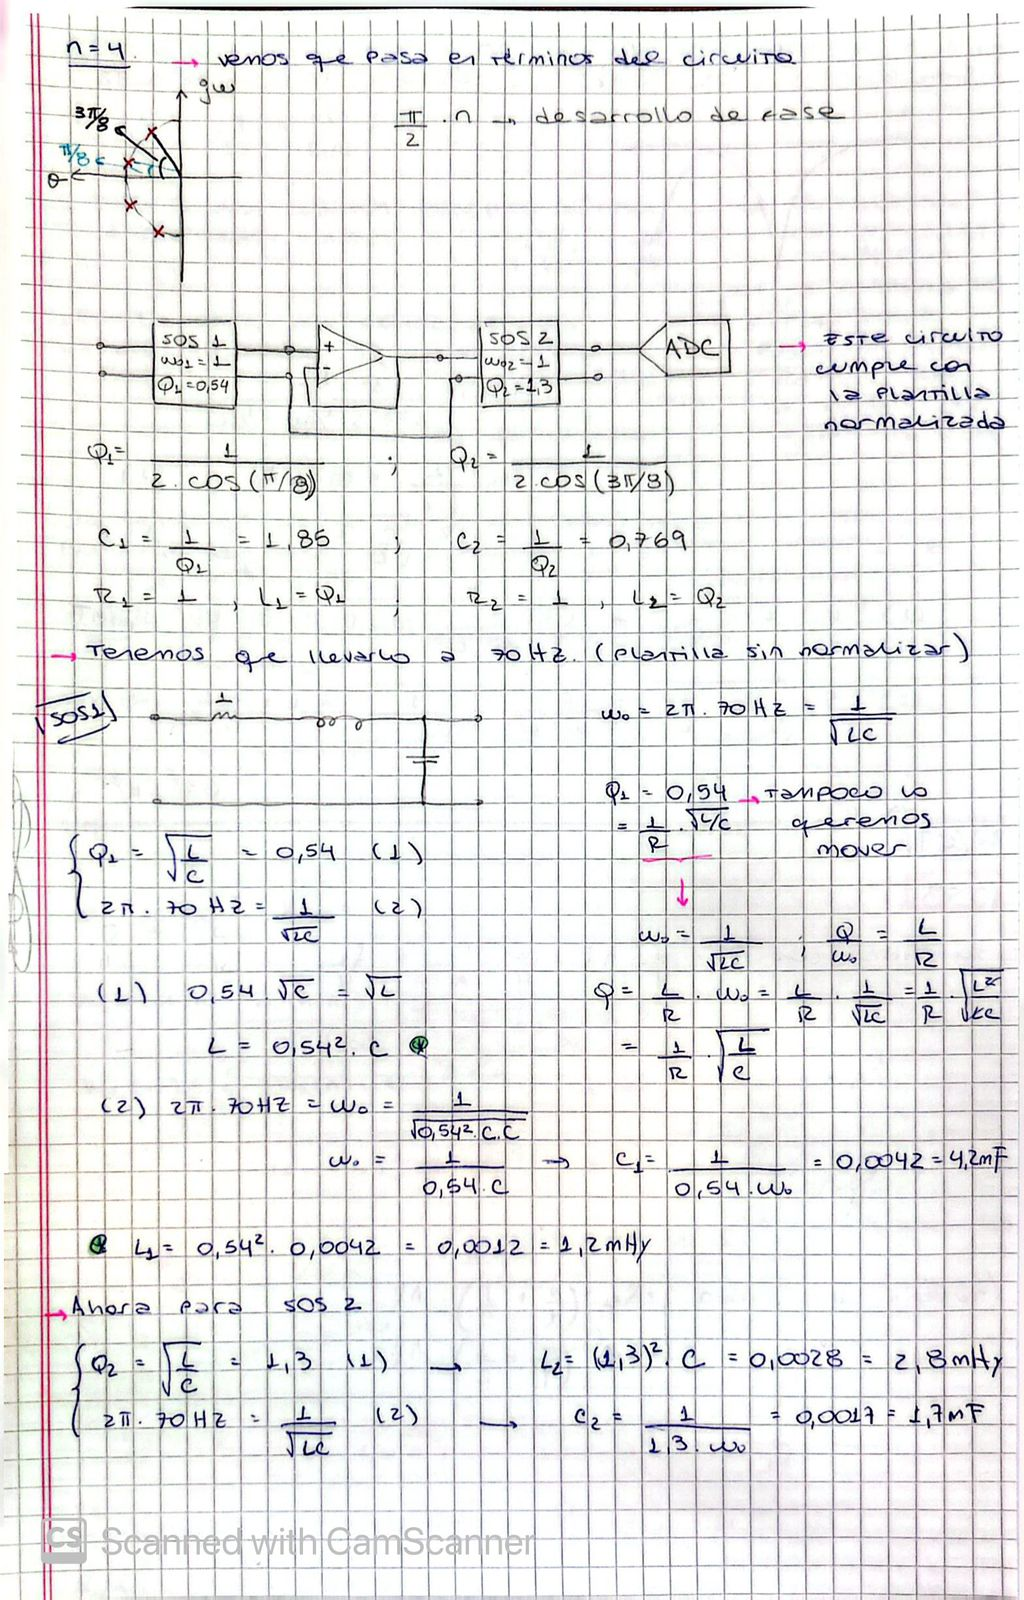 n=4 → vemos que pasa en términos del circuito
jω
3π/8
π/2 . n → desarrollo de fase
π/8
σ
SOS 1
ω01 = 1
Q1 = 0,54
+
-
SOS 2
ω02 = 1
Q2 = 1,3
ADC
→ Este circuito cumple con la plantilla normalizada
Q1 = 1 / 2.cos(π/8) ; Q2 = 1 / 2.cos(3π/8)
C1 = 1/Q1 = 1,85 ; C2 = 1/Q2 = 0,769
R1 = 1 , L1 = Q1 ; R2 = 1 , L2 = Q2
→ Tenemos que llevarlo a 70Hz. (plantilla sin normalizar)
SOS1
1
ω0 = 2π.70Hz = 1/√LC
Q1 = 0,54 → tampoco lo queremos mover
= 1/R . √L/C
Q1 = √L/C = 0,54 (1)
2π.70Hz = 1/√LC (2)
ω0 = 1/√LC ; Q/ω0 = L/R
(1) 0,54 . √C = √L
Q = L/R . ω0 = L/R . 1/√LC = 1/R . √L²/LC
L = 0,54². C *
= 1/R . √L/C
(2) 2π.70Hz = ω0 = 1/√0,54².C.C
ω0 = 1/0,54.C → C1 = 1/0,54.ω0 = 0,0042 = 4,2mF
* L1 = 0,54². 0,0042 = 0,0012 = 1,2mHy
→ Ahora para SOS 2
Q2 = √L/C = 1,3 (1) → L2 = (1,3)². C = 0,0028 = 2,8mHy
2π.70Hz = 1/√LC (2) → C2 = 1/1,3.ω0 = 0,0017 = 1,7mF
CS Scanned with CamScanner